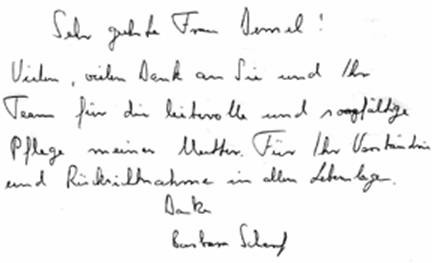 Sehr geehrte Frau Demel!
Vielen, vielen Dank an Sie und Ihr
Team für die liebevolle und sorgfältige
Pflege meiner Mutter. Für Ihr Verständnis
und Rücksichtnahme in allen Lebenslagen.
Danke
Barbara Scharf